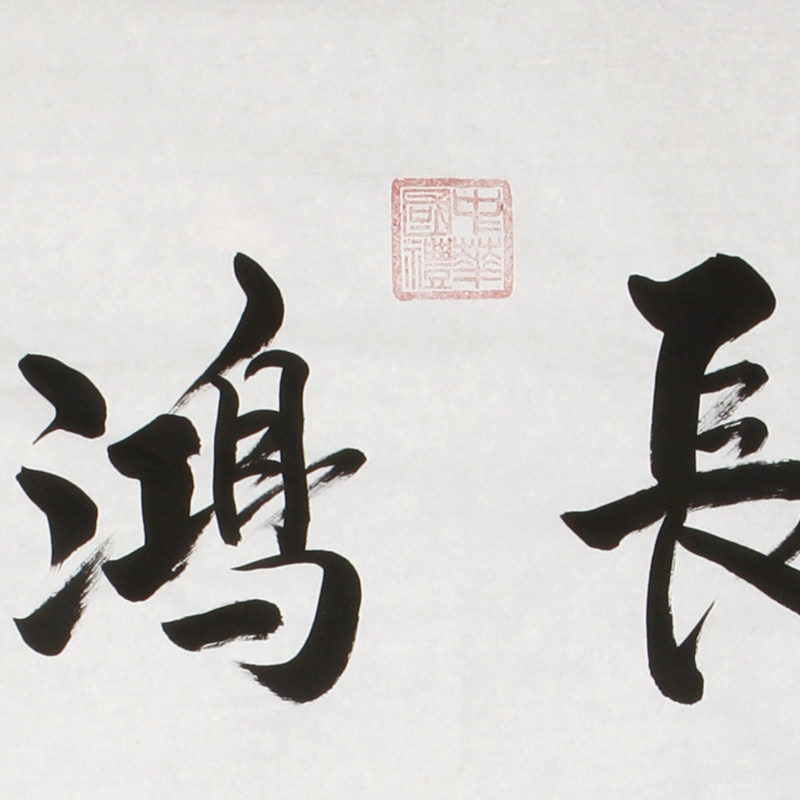 長鴻
中華
國禮